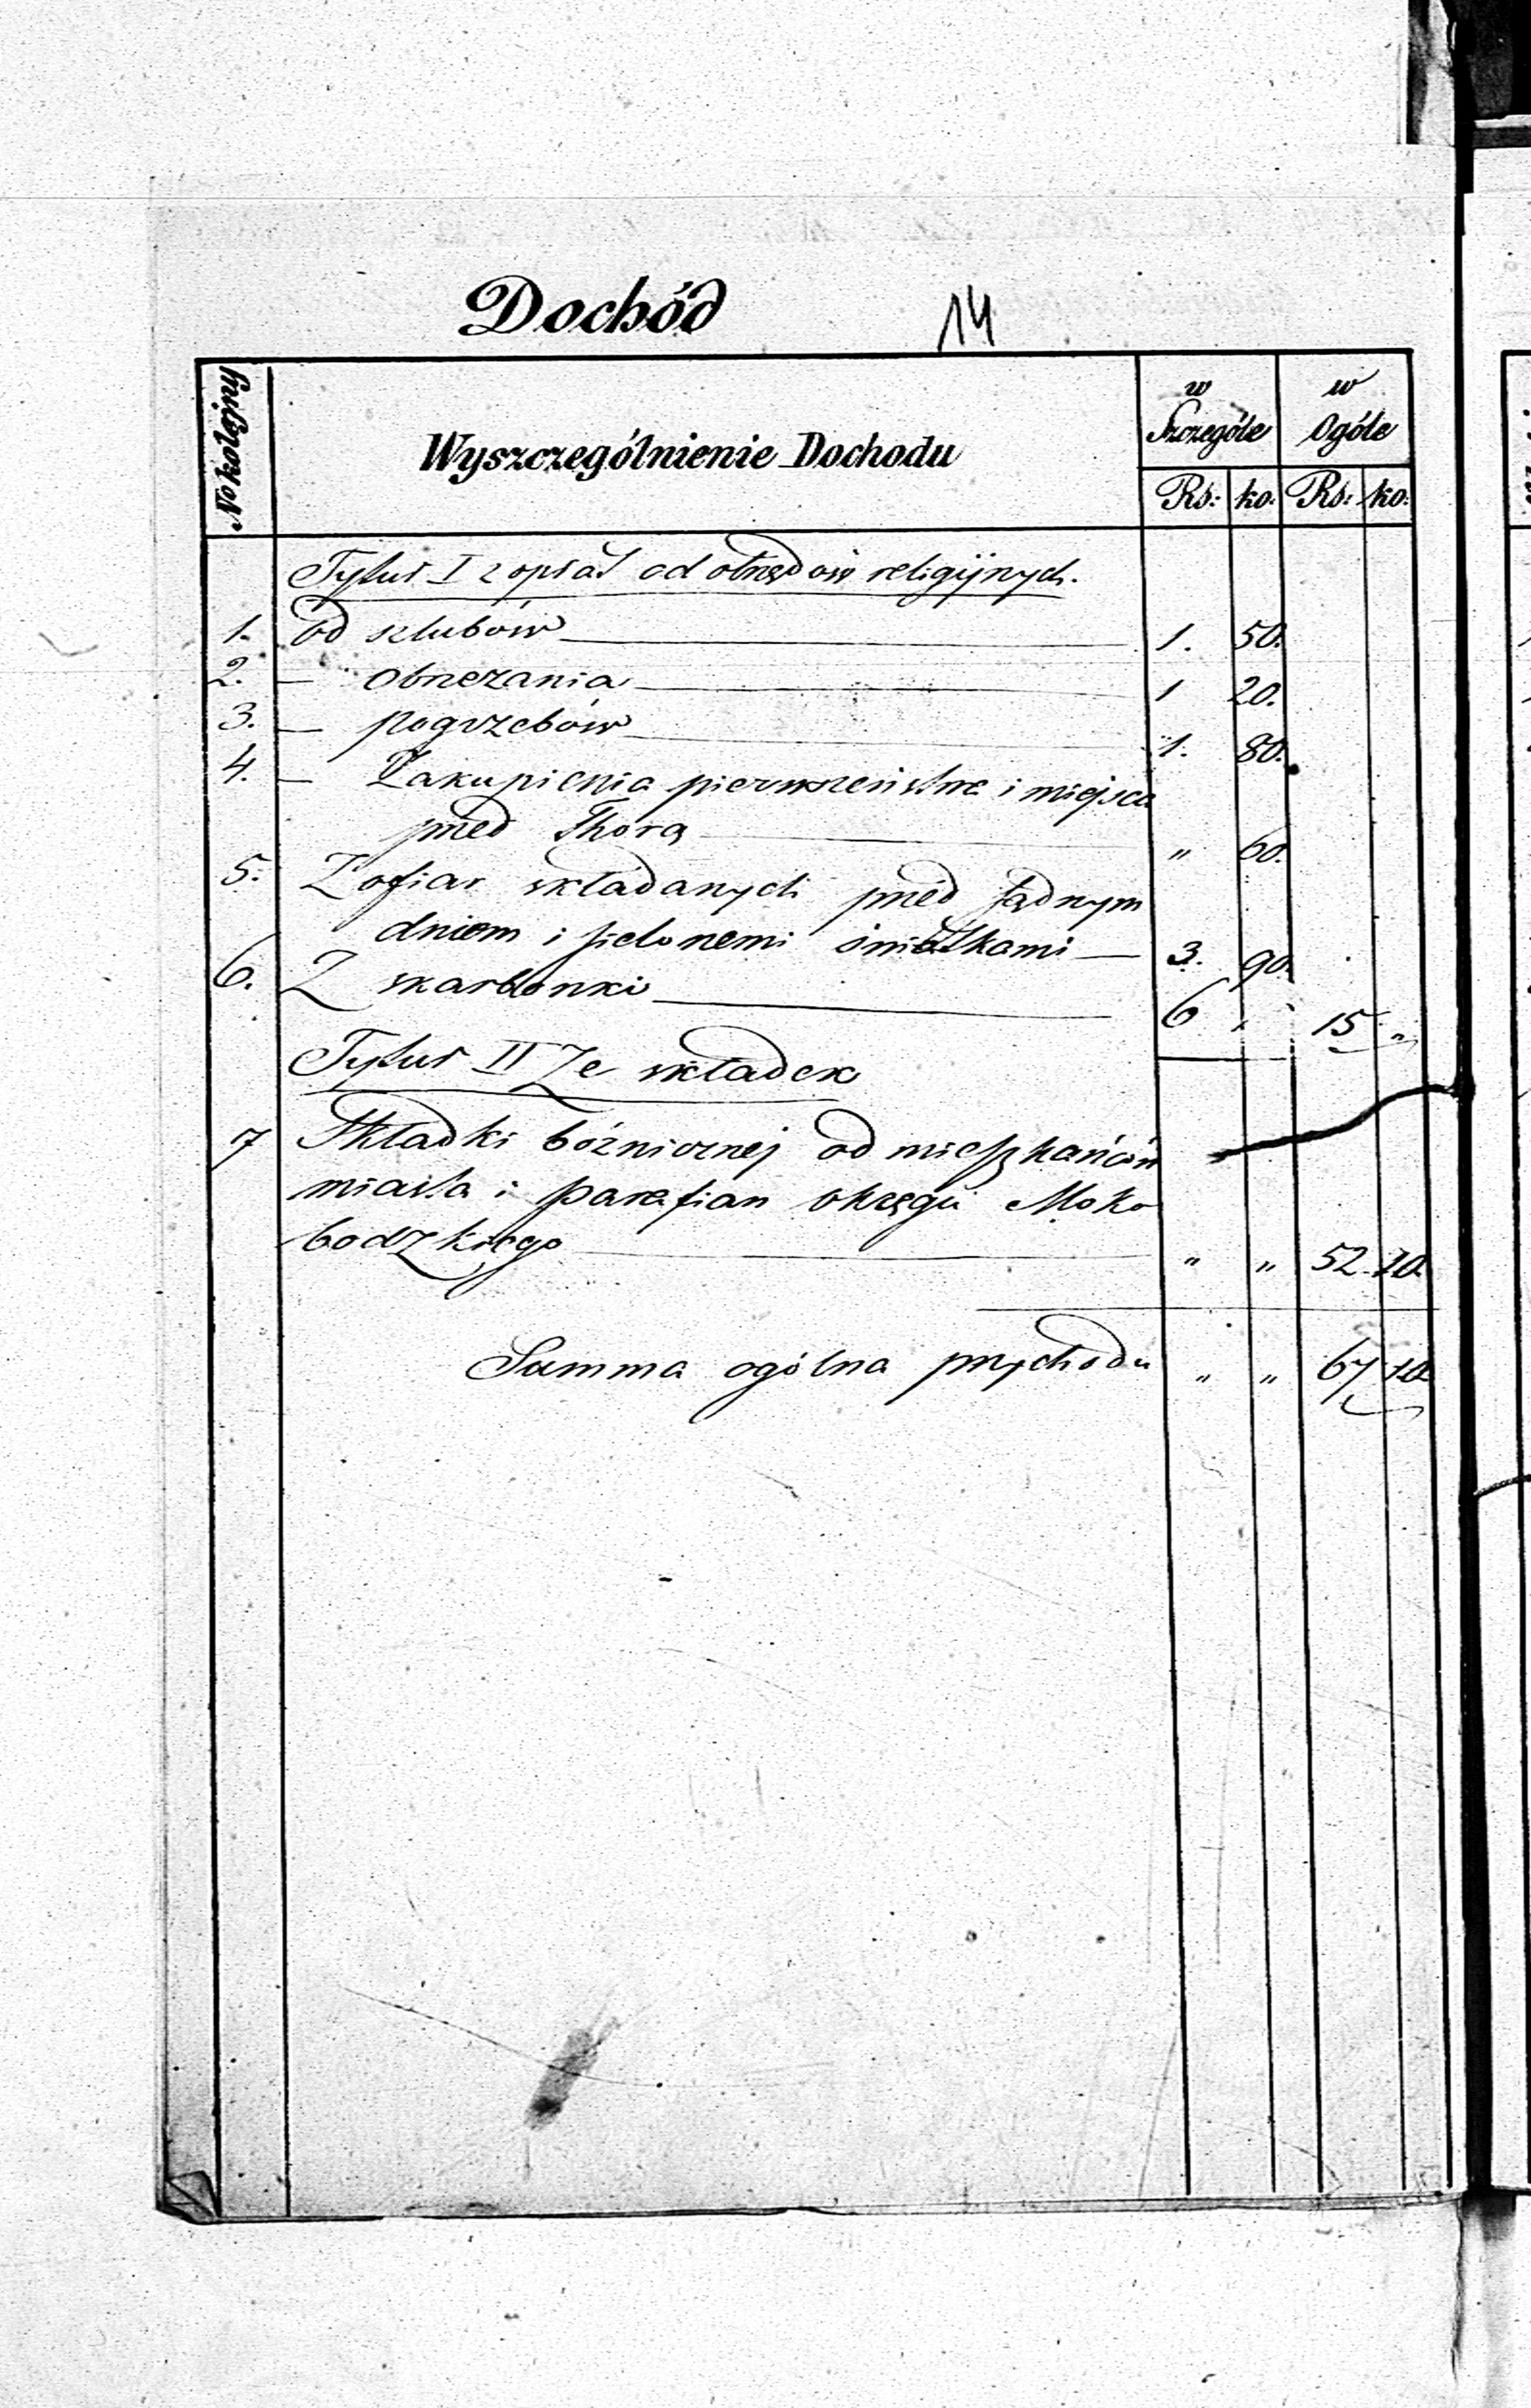 Dochód 14
No kolejny
Wyszczególnienie Dochodu
w Szczególe
w Ogóle
Rs: ko: Rs: ko:
Tytuł I z opłat od obrzędów religijnych.
1. od szlubów 1. 50.
2. — obrzezania 1 20.
3. — pogrzebów 1. 80.
4. — Zakupienia pierwszeństwa i miejsca
przed Thorą " 60.
5. Z ofiar składanych przed sądnym
dniem i zielonemi świątkami — 3. 90.
6. Z skarbonki 6 " 15 "
Tytuł II Ze składek
7 Składki bóżnicznej od mieszkańców
miasta i parafian okręgu Moko
bodzkiego " " 52 10.
Summa ogólna przychodu " " 67 10.